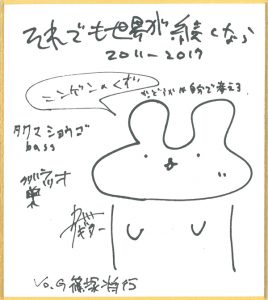 それでも世界が続くなら
2011-2019
ニンゲンのくず
かどうかは自分で考える
タクマショウゴ
bass
ギター
Vo.G 篠塚将行